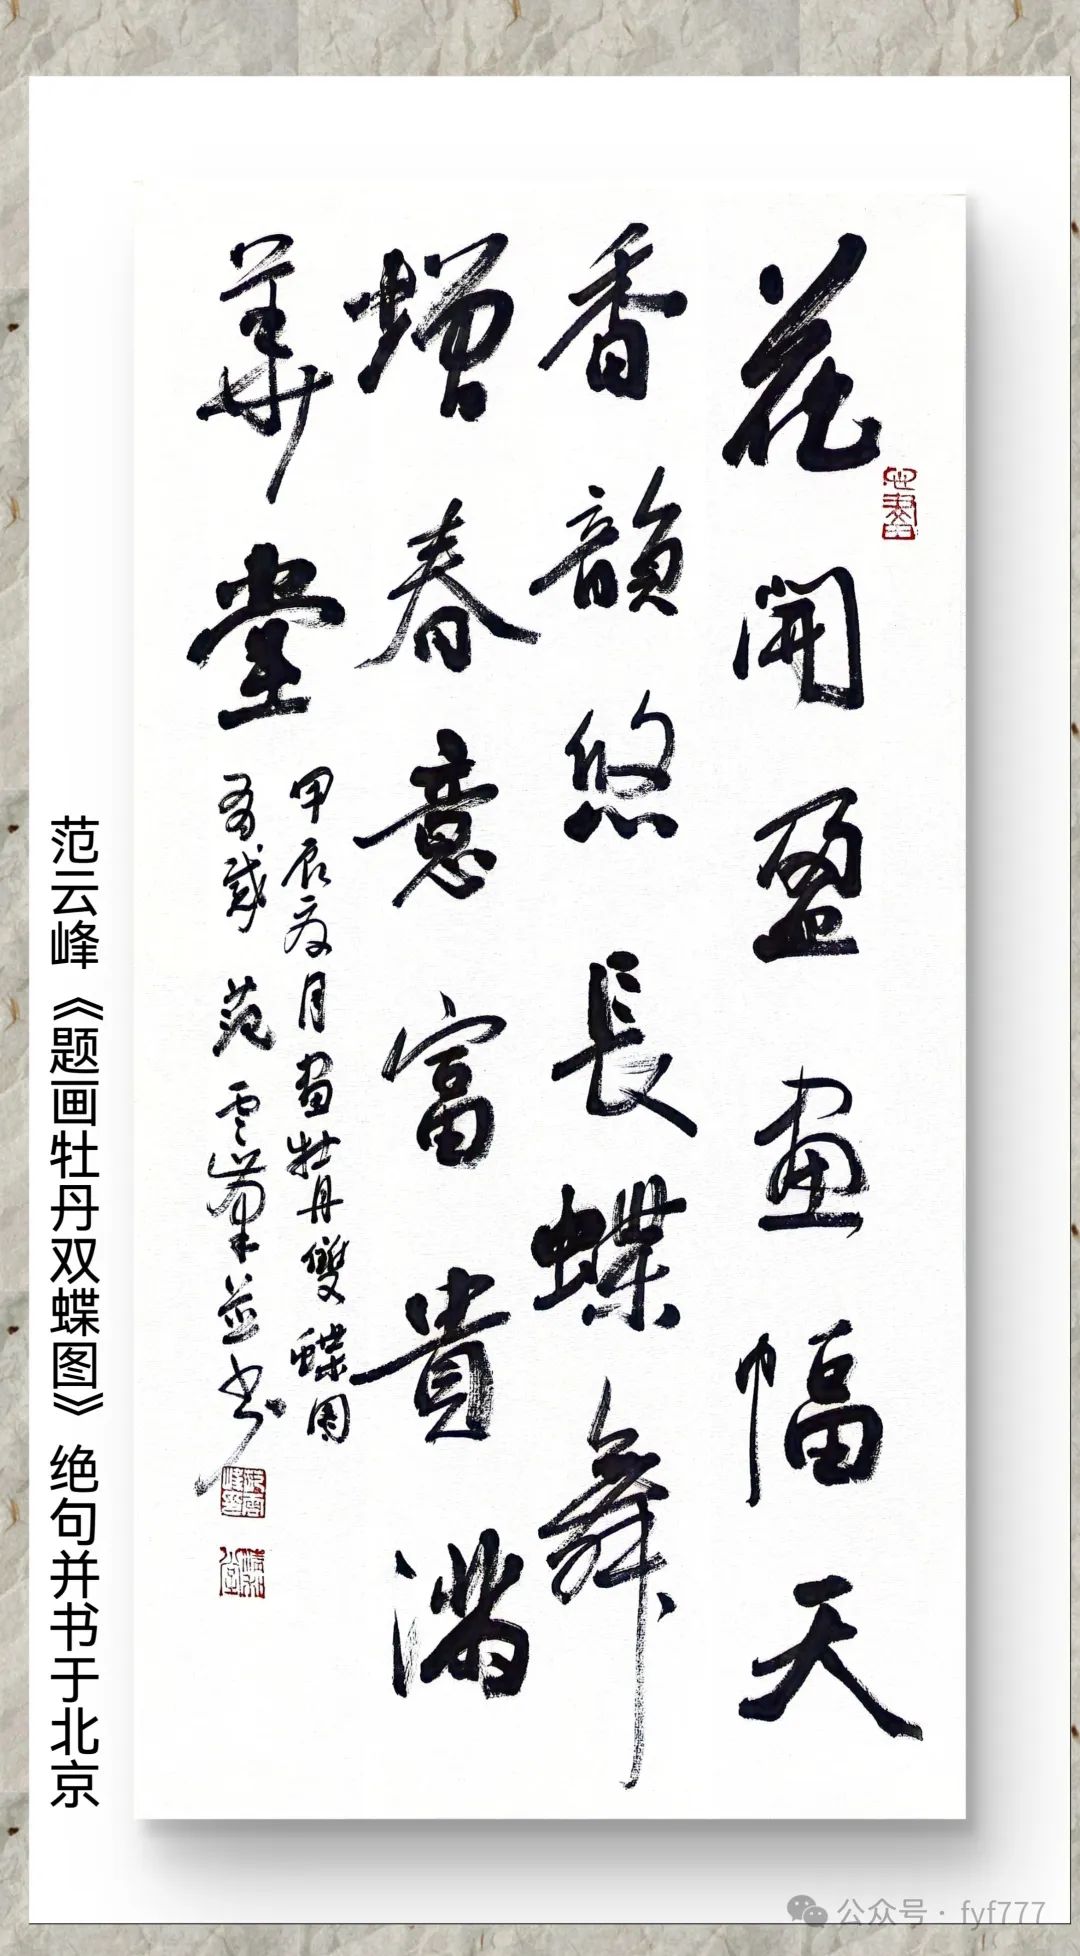 花開盈畫幅天
香韻悠長蝶舞
增春意富貴滿
華堂
甲辰夏月畫牡丹雙蝶图
有感 范雲峯並书
范云峰《题画牡丹双蝶图》绝句并书于北京
公众号·fyf777